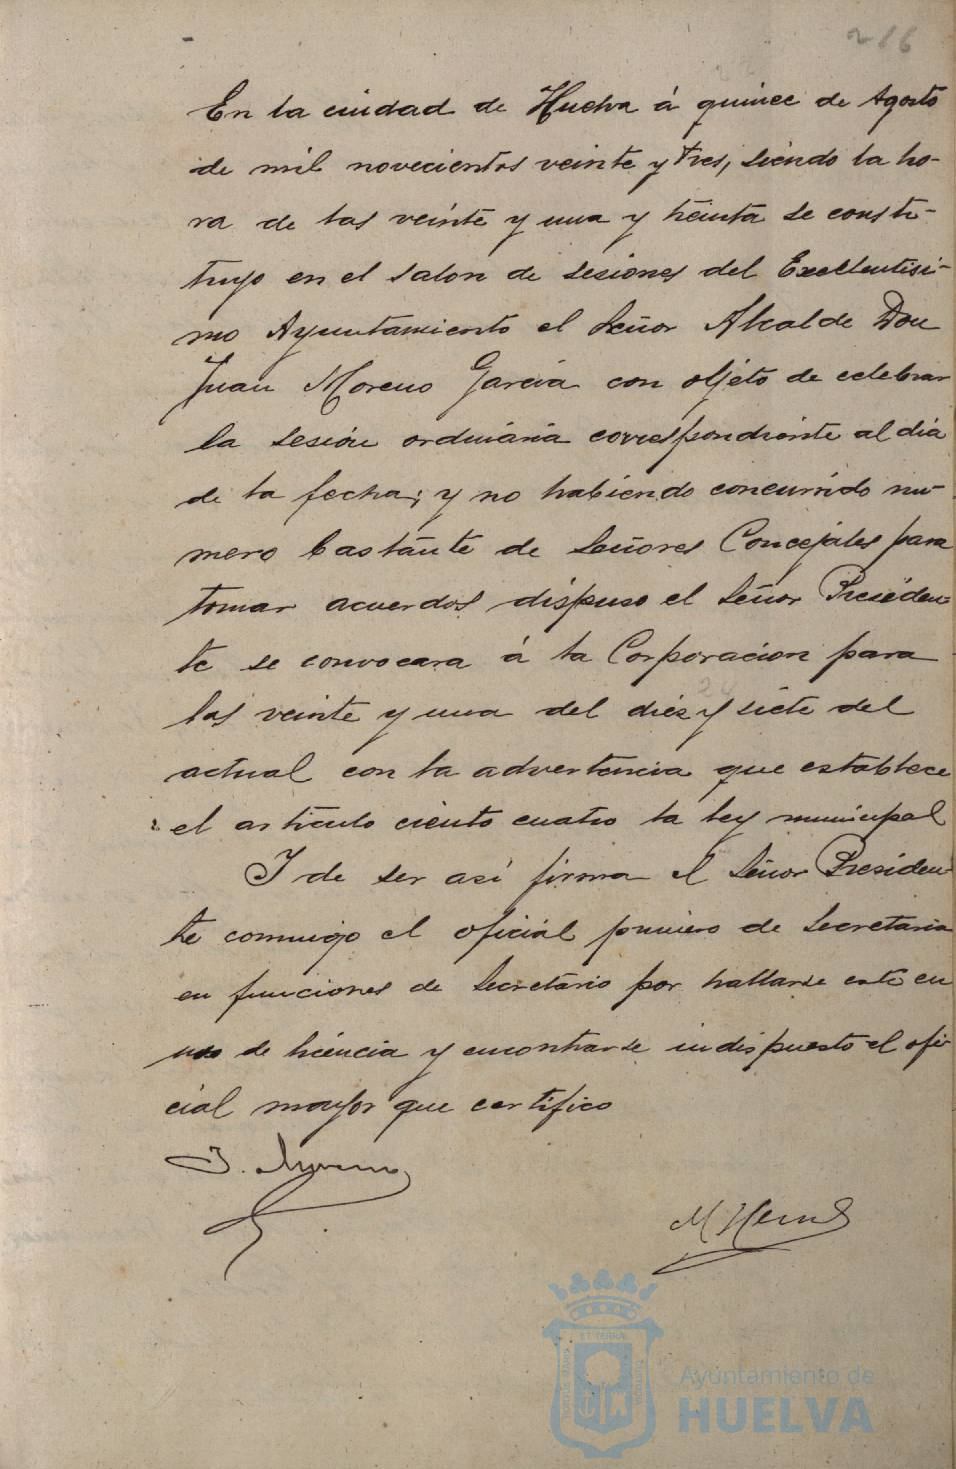 216
En la ciudad de Huelva á quince de Agosto
de mil novecientos veinte y tres, siendo la ho-
ra de las veinte y una y treinta se consti-
tuyo en el salon de sesiones del Excelentisi-
mo Ayuntamiento el Señor Alcalde Don
Juan Moreno Garcia con objeto de celebrar
la sesión ordinaria correspondiente al dia
de la fecha; y no habiendo concurrido nu-
mero bastante de Señores Concejales para
tomar acuerdos dispuso el Señor Presiden-
te se convocara á la Corporacion para
las veinte y una del diez y siete del
actual con la advertencia que establece
el articulo ciento cuatro la ley municipal
Y de ser así firma el Señor Presiden-
te conmigo el oficial primero de Secretaria
en funciones de Secretario por hallarse este en
uso de licencia y encontrarse indispuesto el ofi-
cial mayor que certifico
J. Moreno
M
Ayuntamiento de
HUELVA